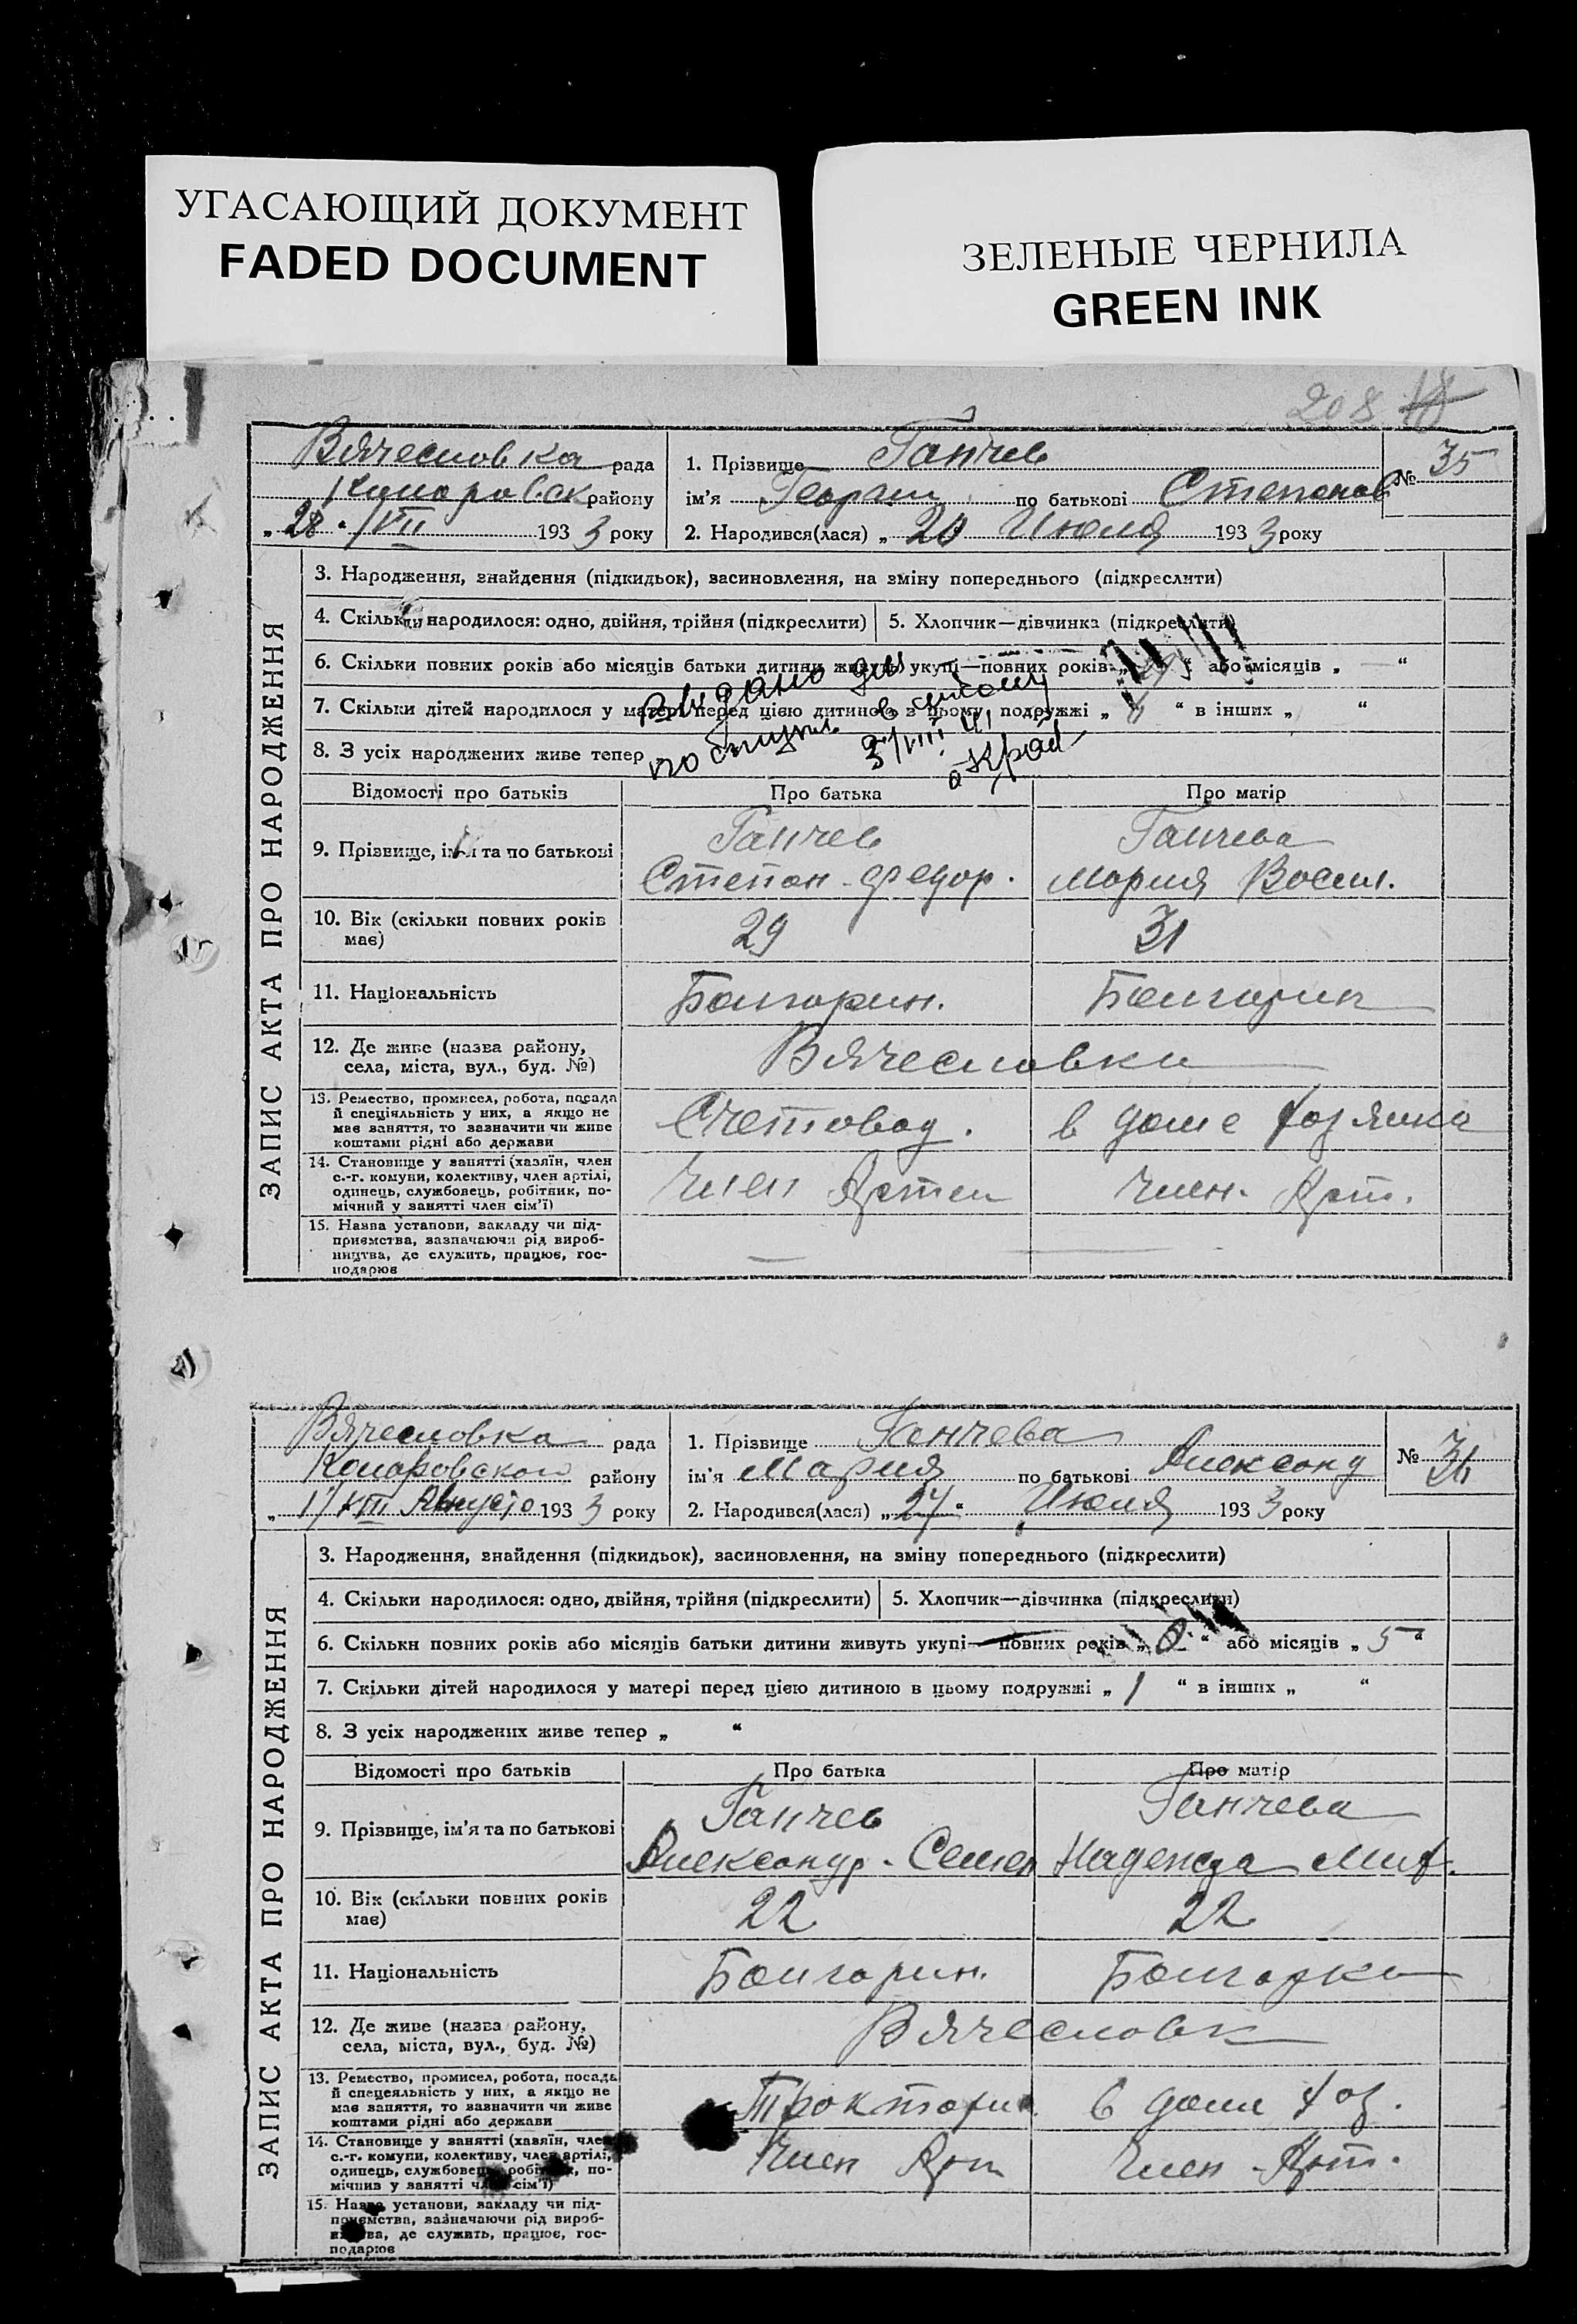 УГАСАЮЩИЙ ДОКУМЕНТ
FADED DOCUMENT
ЗЕЛЕНЫЕ ЧЕРНИЛА
GREEN INK
208
Вячесловка рада
района району
„ 28 “ /VII 1933 року
1. Прізвище Ганчев
ім’я Георгий по батькові Степанов
2. Народився(лася) „ 20 Июля 1933 року
№ 35
ЗАПИС АКТА ПРО НАРОДЖЕННЯ
3. Народження, знайдення (підкидьок), засиновлення, на зміну попереднього (підкреслити)
4. Скільки народилося: одно, двійня, трійня (підкреслити) 5. Хлопчик—дівчинка (підкреслити)
6. Скільки повних років або місяців батьки дитини живуть укупі—повних років „ “ або місяців „ — “
7. Скільки дітей народилося у матері перед цією дитиною в цьому подружжі „ “ в інших „ “
8. З усіх народжених живе тепер
Выдано для
поступл. в школу
3/VIII 41
Відомості про батьків Про батька Про матір
9. Прізвище, ім’я та по батькові
Ганчев
Степан Федор.
Ганчева
Мария Васил.
10. Вік (скільки повних років має)
29 31
11. Національність Болгарин. Болгарин
12. Де живе (назва району,
села, міста, вул., буд. №)
Вячесловки
13. Ремество, промисел, робота, посада
й спеціяльність у них, а якщо не
має заняття, то зазначити чи живе
коштами рідні або держави
Счетовод. в доме хозяйка
14. Становище у занятті (хазяїн, член
с.-г. комуни, колективу, член артілі,
одинець, службовець, робітник, по-
мічний у занятті член сім’ї)
Член Артел Член. Арт.
15. Назва установи, закладу чи під-
приємства, зазначаючи рід вироб-
ництва, де служить, працює, гос-
подарює
Вячесловка рада
Коларовского району
„ 1/VIII Августо 1933 року
1. Прізвище Ганчева
ім’я Мария по батькові Александ
2. Народився(лася) „ 27 “ Июля 1933 року
№ 36
ЗАПИС АКТА ПРО НАРОДЖЕННЯ
3. Народження, знайдення (підкидьок), засиновлення, на зміну попереднього (підкреслити)
4. Скільки народилося: одно, двійня, трійня (підкреслити) 5. Хлопчик—дівчинка (підкреслити)
6. Скільки повних років або місяців батьки дитини живуть укупі—повних років „ “ або місяців „ 5 “
7. Скільки дітей народилося у матері перед цією дитиною в цьому подружжі „ 1 “ в інших „ “
8. З усіх народжених живе тепер „ “
Відомості про батьків Про батька Про матір
9. Прізвище, ім’я та по батькові
Ганчев
Александр. Семен
Ганчева
Надежда Мих.
10. Вік (скільки повних років має)
22 22
11. Національність Болгарин. Болгарка
12. Де живе (назва району,
села, міста, вул., буд. №)
Вячесловк
13. Ремество, промисел, робота, посада
й спецеяльність у них, а якщо не
має заняття, то зазначити чи живе
коштами рідні або держави
Тракторис. в доме хоз.
14. Становище у занятті (хазяїн, член
с.-г. комуни, колективу, член артілі,
одинець, службовець, робітник, по-
мічнив у занятті член сім’ї)
Член Арт Член Арт.
15. Назва установи, закладу чи під-
приємства, зазначаючи рід вироб-
ництва, де служить, працює, гос-
подарює